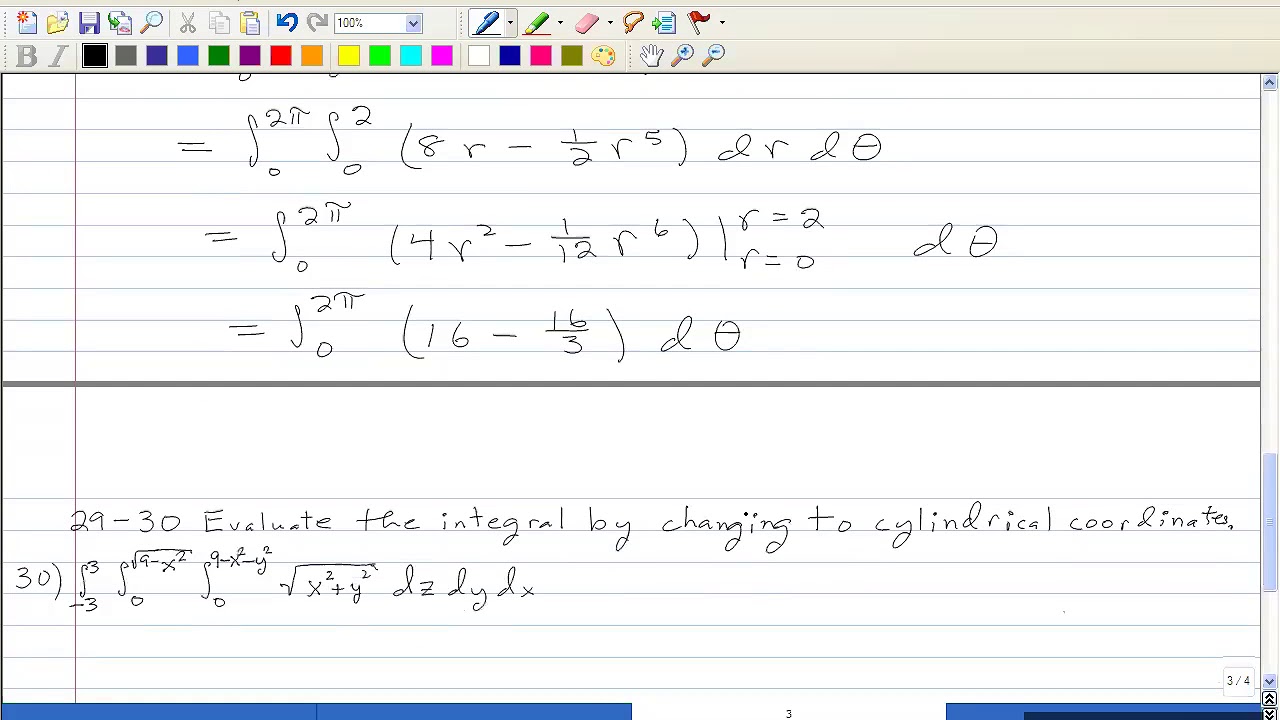 100%
B I
= ∫_0^{2π} ∫_0^2 (8r - 1/2 r^5) dr dθ
= ∫_0^{2π} (4r^2 - 1/12 r^6) |_{r=0}^{r=2} dθ
= ∫_0^{2π} (16 - 16/3) dθ
29-30 Evaluate the integral by changing to cylindrical coordinates.
30) ∫_{-3}^3 ∫_0^{√(9-x^2)} ∫_0^{9-x^2-y^2} √(x^2+y^2) dz dy dx
3/4
3